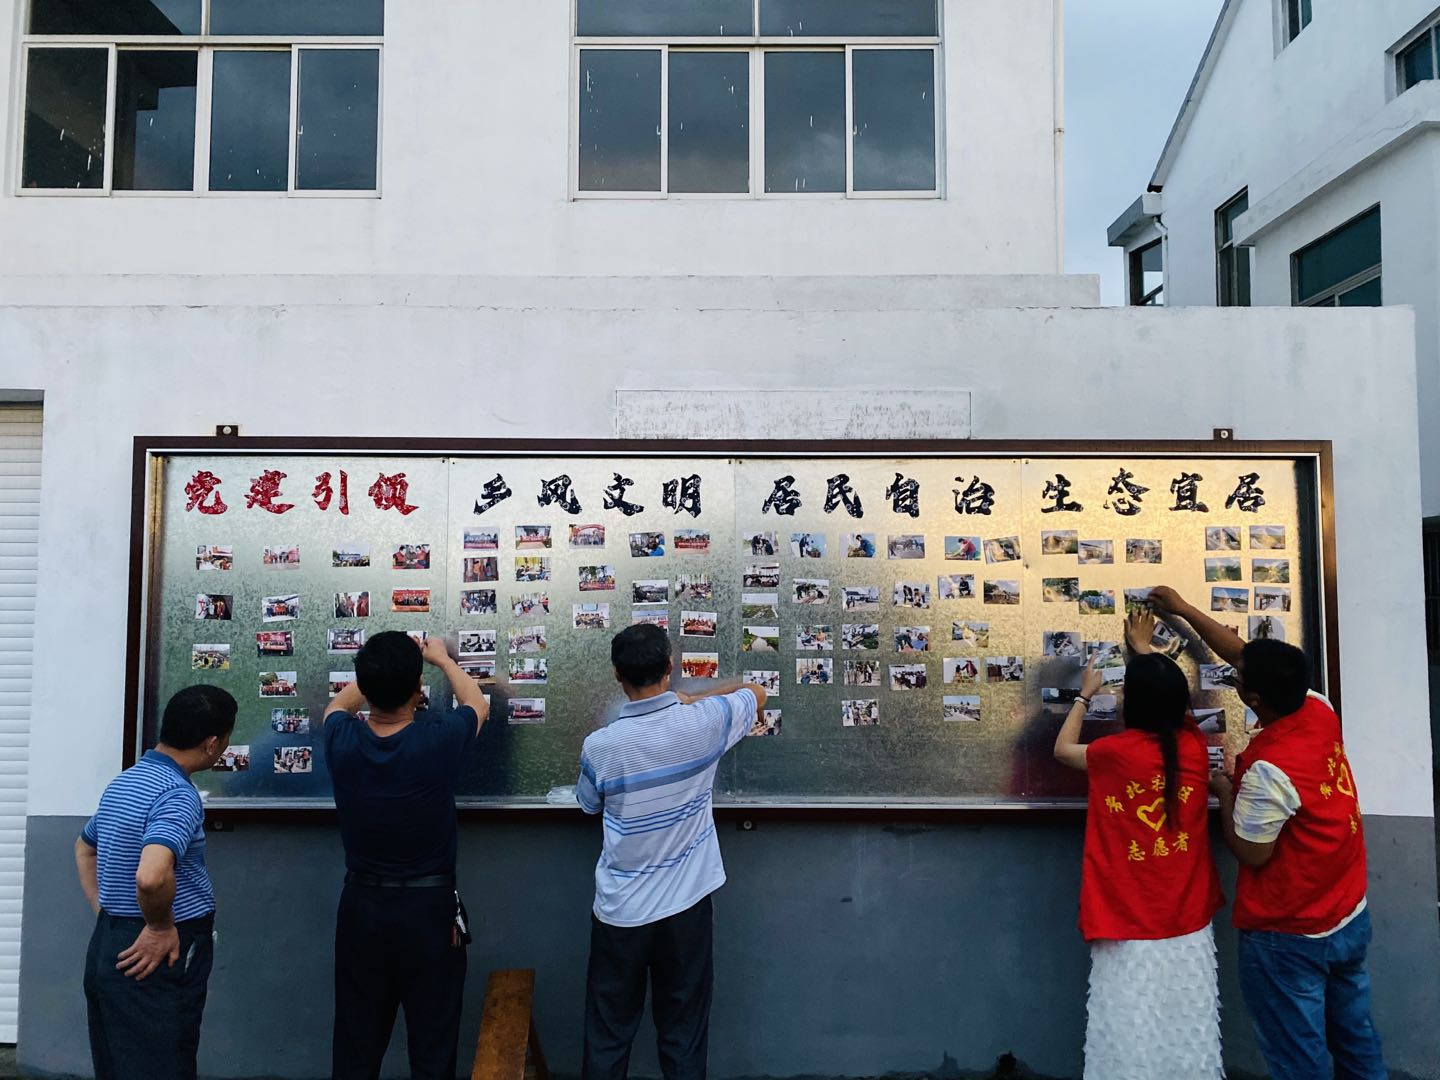 党建引领
乡风文明
居民自治
生态宜居
北社区
志愿者